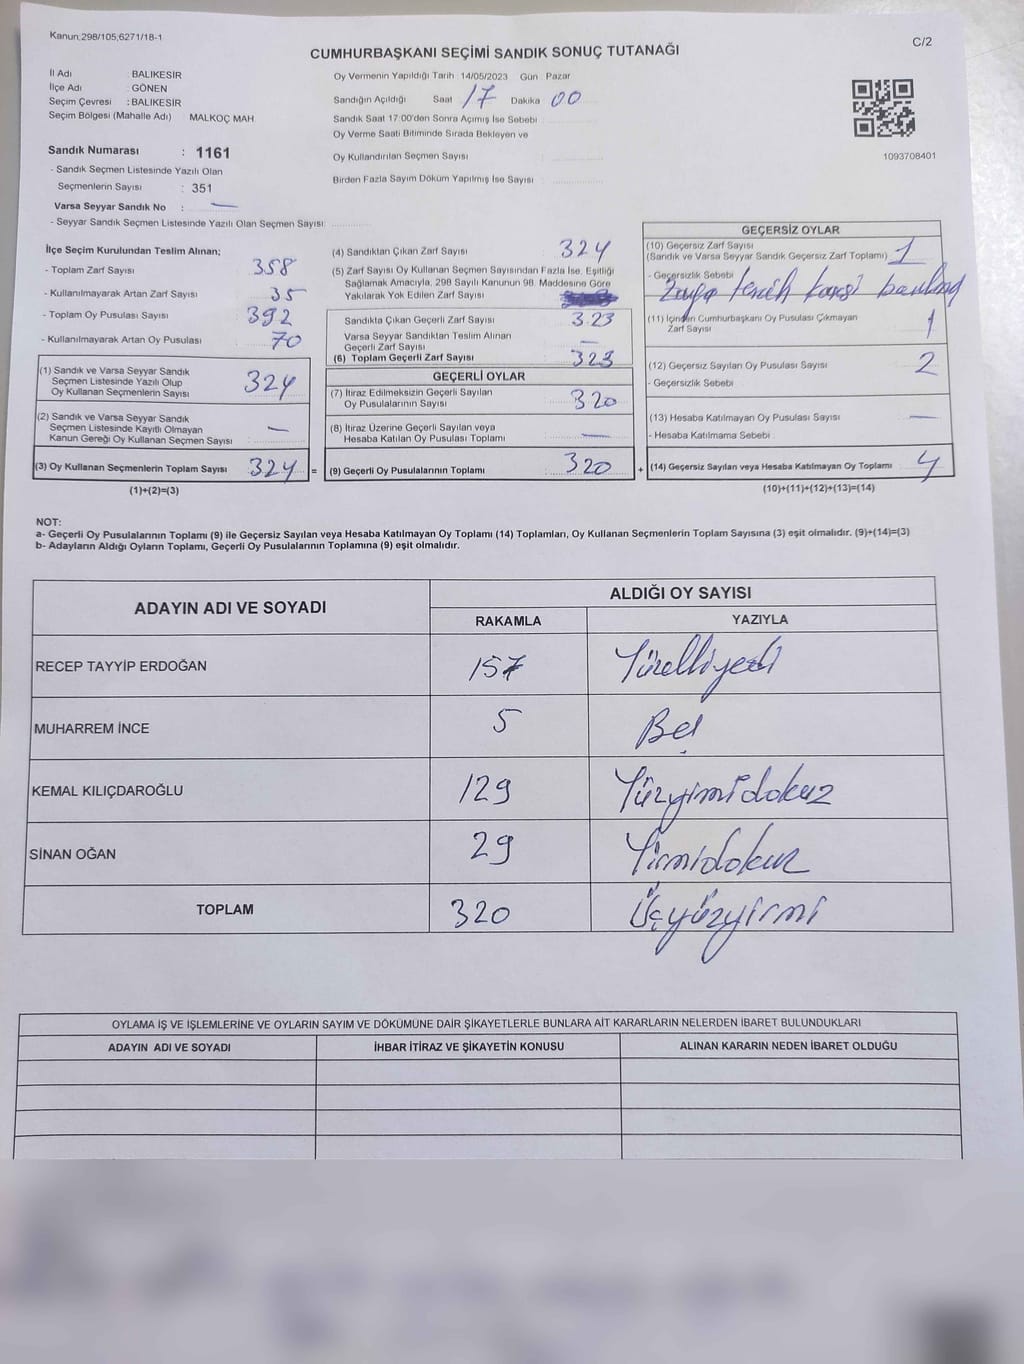 Kanun:298/105,6271/18-1
C/2
CUMHURBAŞKANI SEÇİMİ SANDIK SONUÇ TUTANAĞI
İl Adı : BALIKESİR
İlçe Adı : GÖNEN
Seçim Çevresi : BALIKESİR
Seçim Bölgesi (Mahalle Adı) MALKOÇ MAH
Sandık Numarası : 1161
- Sandık Seçmen Listesinde Yazılı Olan
Seçmenlerin Sayısı : 351
Varsa Seyyar Sandık No : —
- Seyyar Sandık Seçmen Listesinde Yazılı Olan Seçmen Sayısı
Oy Vermenin Yapıldığı Tarih :14/05/2023 Gün Pazar
Sandığın Açıldığı Saat 17 Dakika 00
Sandık Saat 17:00'den Sonra Açımış İse Sebebi :
Oy Verme Saati Bitiminde Sırada Bekleyen ve
Oy Kullandırılan Seçmen Sayısı
Birden Fazla Sayım Döküm Yapılmış İse Sayısı :
1093708401
İlçe Seçim Kurulundan Teslim Alınan;
- Toplam Zarf Sayısı : 358
- Kullanılmayarak Artan Zarf Sayısı : 35
- Toplam Oy Pusulası Sayısı : 392
- Kullanılmayarak Artan Oy Pusulası : 70
(1) Sandık ve Varsa Seyyar Sandık
Seçmen Listesinde Yazılı Olup
Oy Kullanan Seçmenlerin Sayısı : 324
(2) Sandık ve Varsa Seyyar Sandık
Seçmen Listesinde Kayıtlı Olmayan
Kanun Gereği Oy Kullanan Seçmen Sayısı : —
(3) Oy Kullanan Seçmenlerin Toplam Sayısı : 324 =
(1)+(2)=(3)
(4) Sandıktan Çıkan Zarf Sayısı : 324
(5) Zarf Sayısı Oy Kullanan Seçmen Sayısından Fazla İse, Eşitliği
Sağlamak Amacıyla, 298 Sayılı Kanunun 98. Maddesine Göre
Yakılarak Yok Edilen Zarf Sayısı
Sandıkta Çıkan Geçerli Zarf Sayısı : 323
Varsa Seyyar Sandıktan Teslim Alınan
Geçerli Zarf Sayısı : —
(6) Toplam Geçerli Zarf Sayısı : 323
GEÇERLİ OYLAR
(7) İtiraz Edilmeksizin Geçerli Sayılan
Oy Pusulalarının Sayısı : 320
(8) İtiraz Üzerine Geçerli Sayılan veya
Hesaba Katılan Oy Pusulası Toplamı : —
(9) Geçerli Oy Pusulalarının Toplamı : 320 +
GEÇERSİZ OYLAR
(10) Geçersiz Zarf Sayısı
(Sandık ve Varsa Seyyar Sandık Geçersiz Zarf Toplamı) 1
- Geçersizlik Sebebi
tercih
(11) İçinden Cumhurbaşkanı Oy Pusulası Çıkmayan
Zarf Sayısı 1
(12) Geçersiz Sayılan Oy Pusulası Sayısı 2
- Geçersizlik Sebebi
(13) Hesaba Katılmayan Oy Pusulası Sayısı —
- Hesaba Katılmama Sebebi
(14) Geçersiz Sayılan veya Hesaba Katılmayan Oy Toplamı 4
(10)+(11)+(12)+(13)=(14)
NOT:
a- Geçerli Oy Pusulalarının Toplamı (9) ile Geçersiz Sayılan veya Hesaba Katılmayan Oy Toplamı (14) Toplamları, Oy Kullanan Seçmenlerin Toplam Sayısına (3) eşit olmalıdır. (9)+(14)=(3)
b- Adayların Aldığı Oyların Toplamı, Geçerli Oy Pusulalarının Toplamına (9) eşit olmalıdır.
ADAYIN ADI VE SOYADI ALDIĞI OY SAYISI
RAKAMLA YAZIYLA
RECEP TAYYİP ERDOĞAN 157 Yüzelliyedi
MUHARREM İNCE 5 Beş
KEMAL KILIÇDAROĞLU 129 Yüzyimidokuz
SİNAN OĞAN 29 Yirmidokuz
TOPLAM 320 Üçyüzyirmi
OYLAMA İŞ VE İŞLEMLERİNE VE OYLARIN SAYIM VE DÖKÜMÜNE DAİR ŞİKAYETLERLE BUNLARA AİT KARARLARIN NELERDEN İBARET BULUNDUKLARI
ADAYIN ADI VE SOYADI İHBAR İTİRAZ VE ŞİKAYETİN KONUSU ALINAN KARARIN NEDEN İBARET OLDUĞU